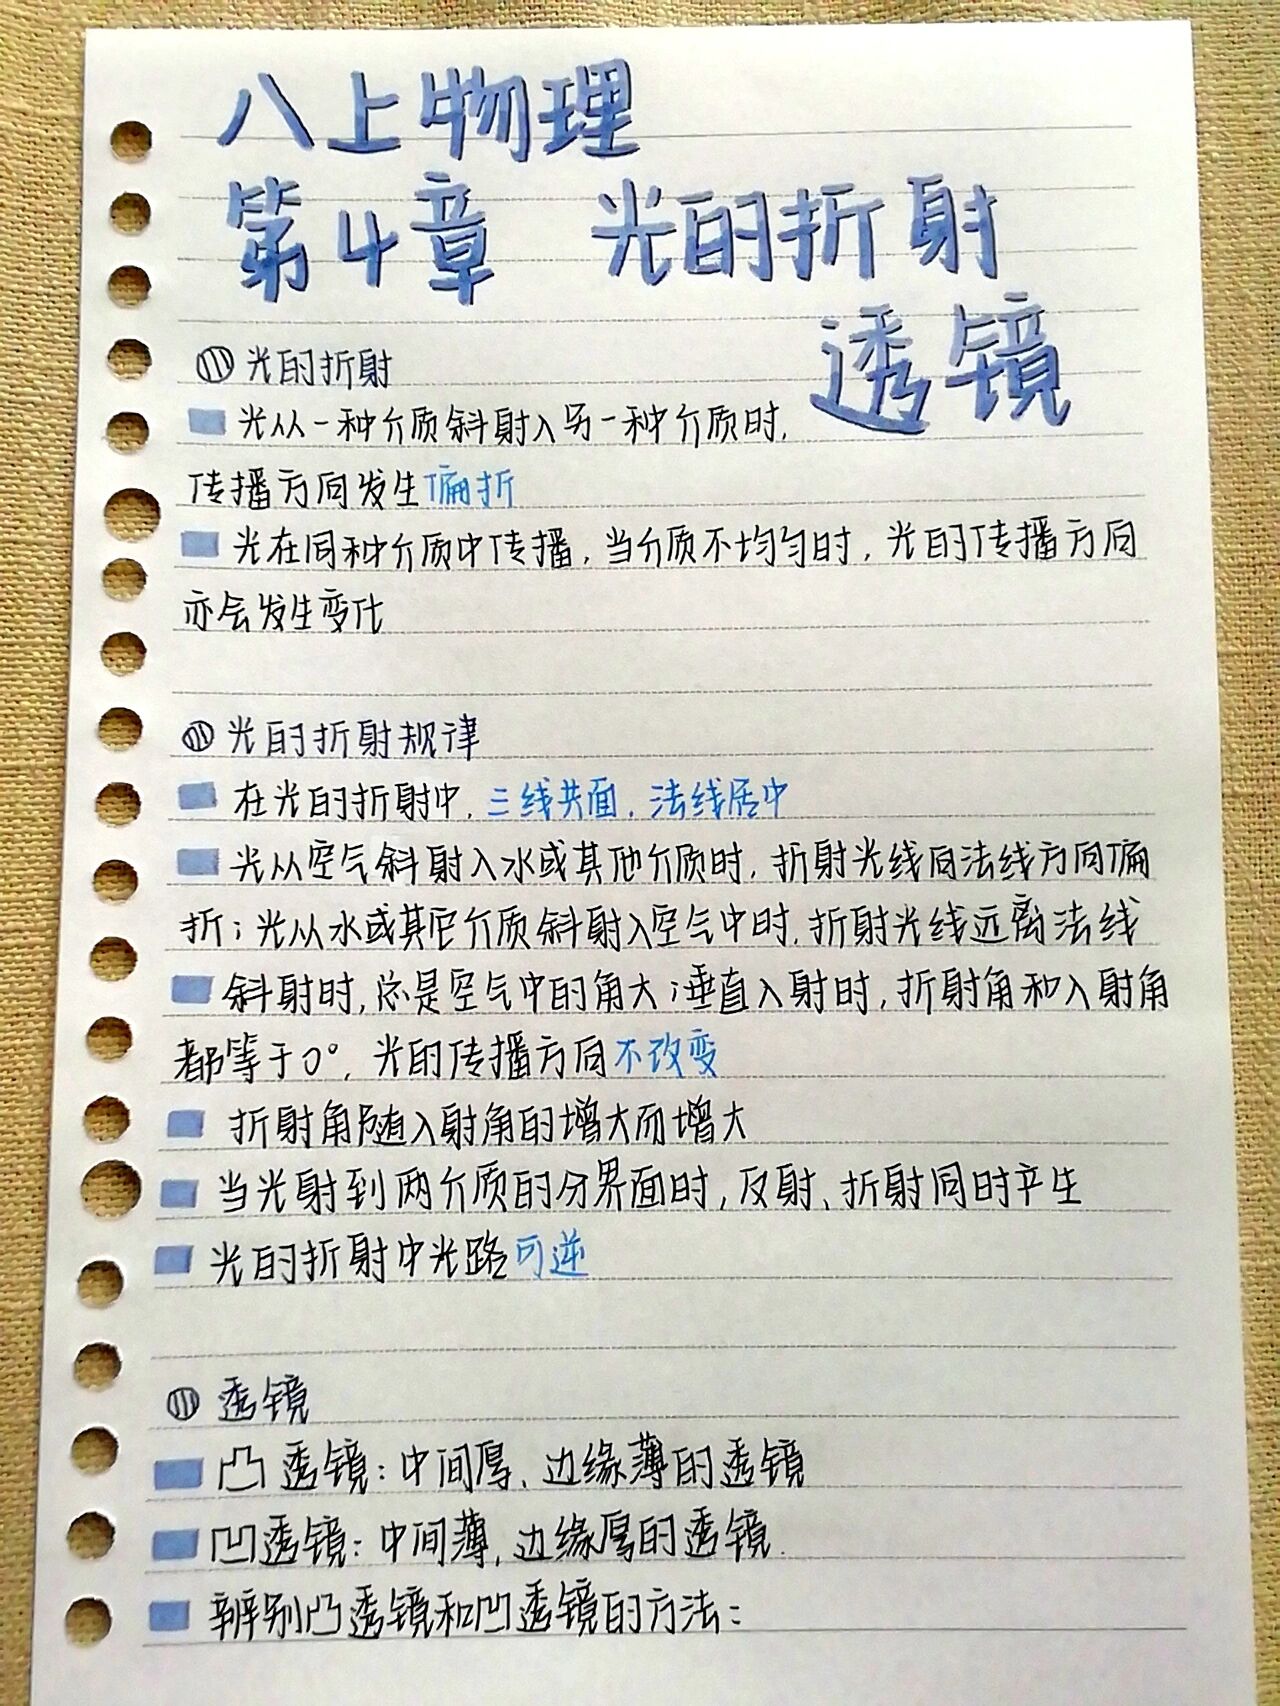 八上物理
第4章 光的折射
透镜
光的折射
光从一种介质斜射入另一种介质时,
传播方向发生偏折
光在同种介质中传播,当介质不均匀时,光的传播方向
亦会发生变化
光的折射规律
在光的折射中,三线共面,法线居中
光从空气斜射入水或其他介质时,折射光线向法线方向偏
折;光从水或其它介质斜射入空气中时,折射光线远离法线
斜射时,总是空气中的角大;垂直入射时,折射角和入射角
都等于0°,光的传播方向不改变
折射角随入射角的增大而增大
当光射到两介质的分界面时,反射、折射同时产生
光的折射中光路可逆
透镜
凸透镜:中间厚,边缘薄的透镜
凹透镜:中间薄,边缘厚的透镜.
辨别凸透镜和凹透镜的方法: